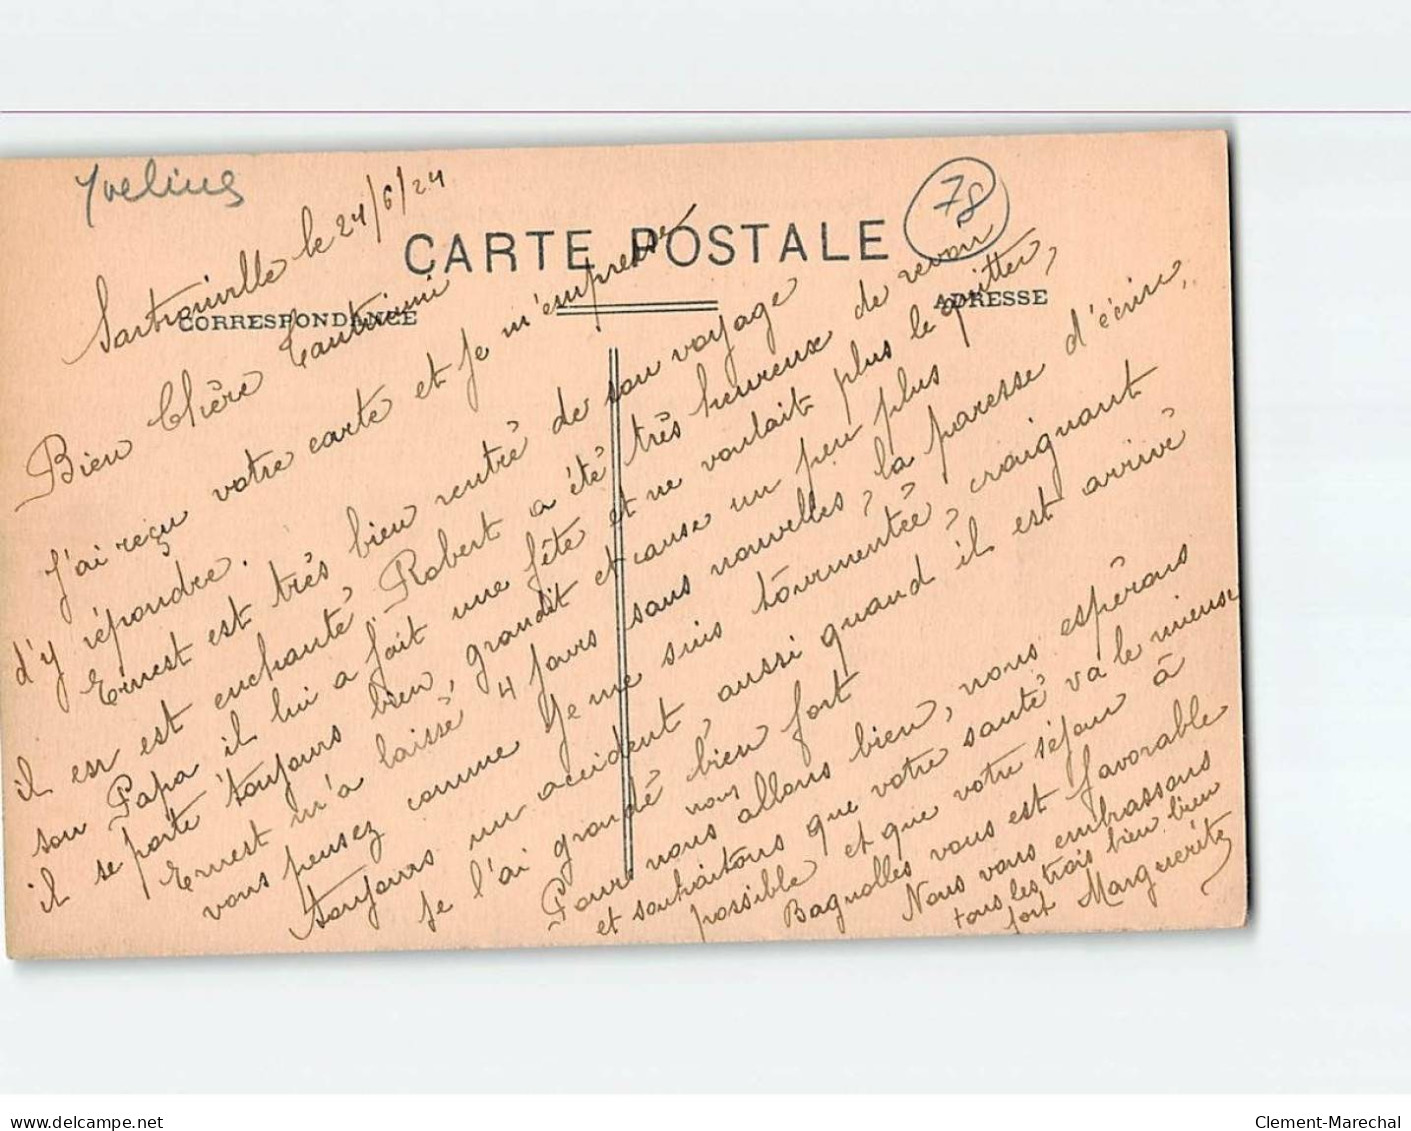 Yvelines
78
CARTE POSTALE
CORRESPONDANCE
ADRESSE
Sartrouville le 24/6/24
Bien Chère Tantinini
J'ai reçu votre carte et je m'empresse
d'y répondre.
Ernest est très bien rentré de son voyage
il en est enchanté, Robert a été très heureux de revoir
son Papa il lui a fait une fête et ne voulait plus le quitter,
il se porte toujours bien, grandit et cause un peu plus
Ernest m'a laissé 4 jours sans nouvelles, la paresse d'écrire,
vous pensez comme je me suis tourmentée, craignant
toujours un accident, aussi quand il est arrivé
je l'ai grondé bien fort
Pour nous nous allons bien, nous espérons
et souhaitons que votre santé va le mieux
possible et que votre séjour à
Bagnolles vous est favorable
Nous vous embrassons
tous les trois bien bien
fort Marguerite
www.delcampe.net
Clement-Marechal